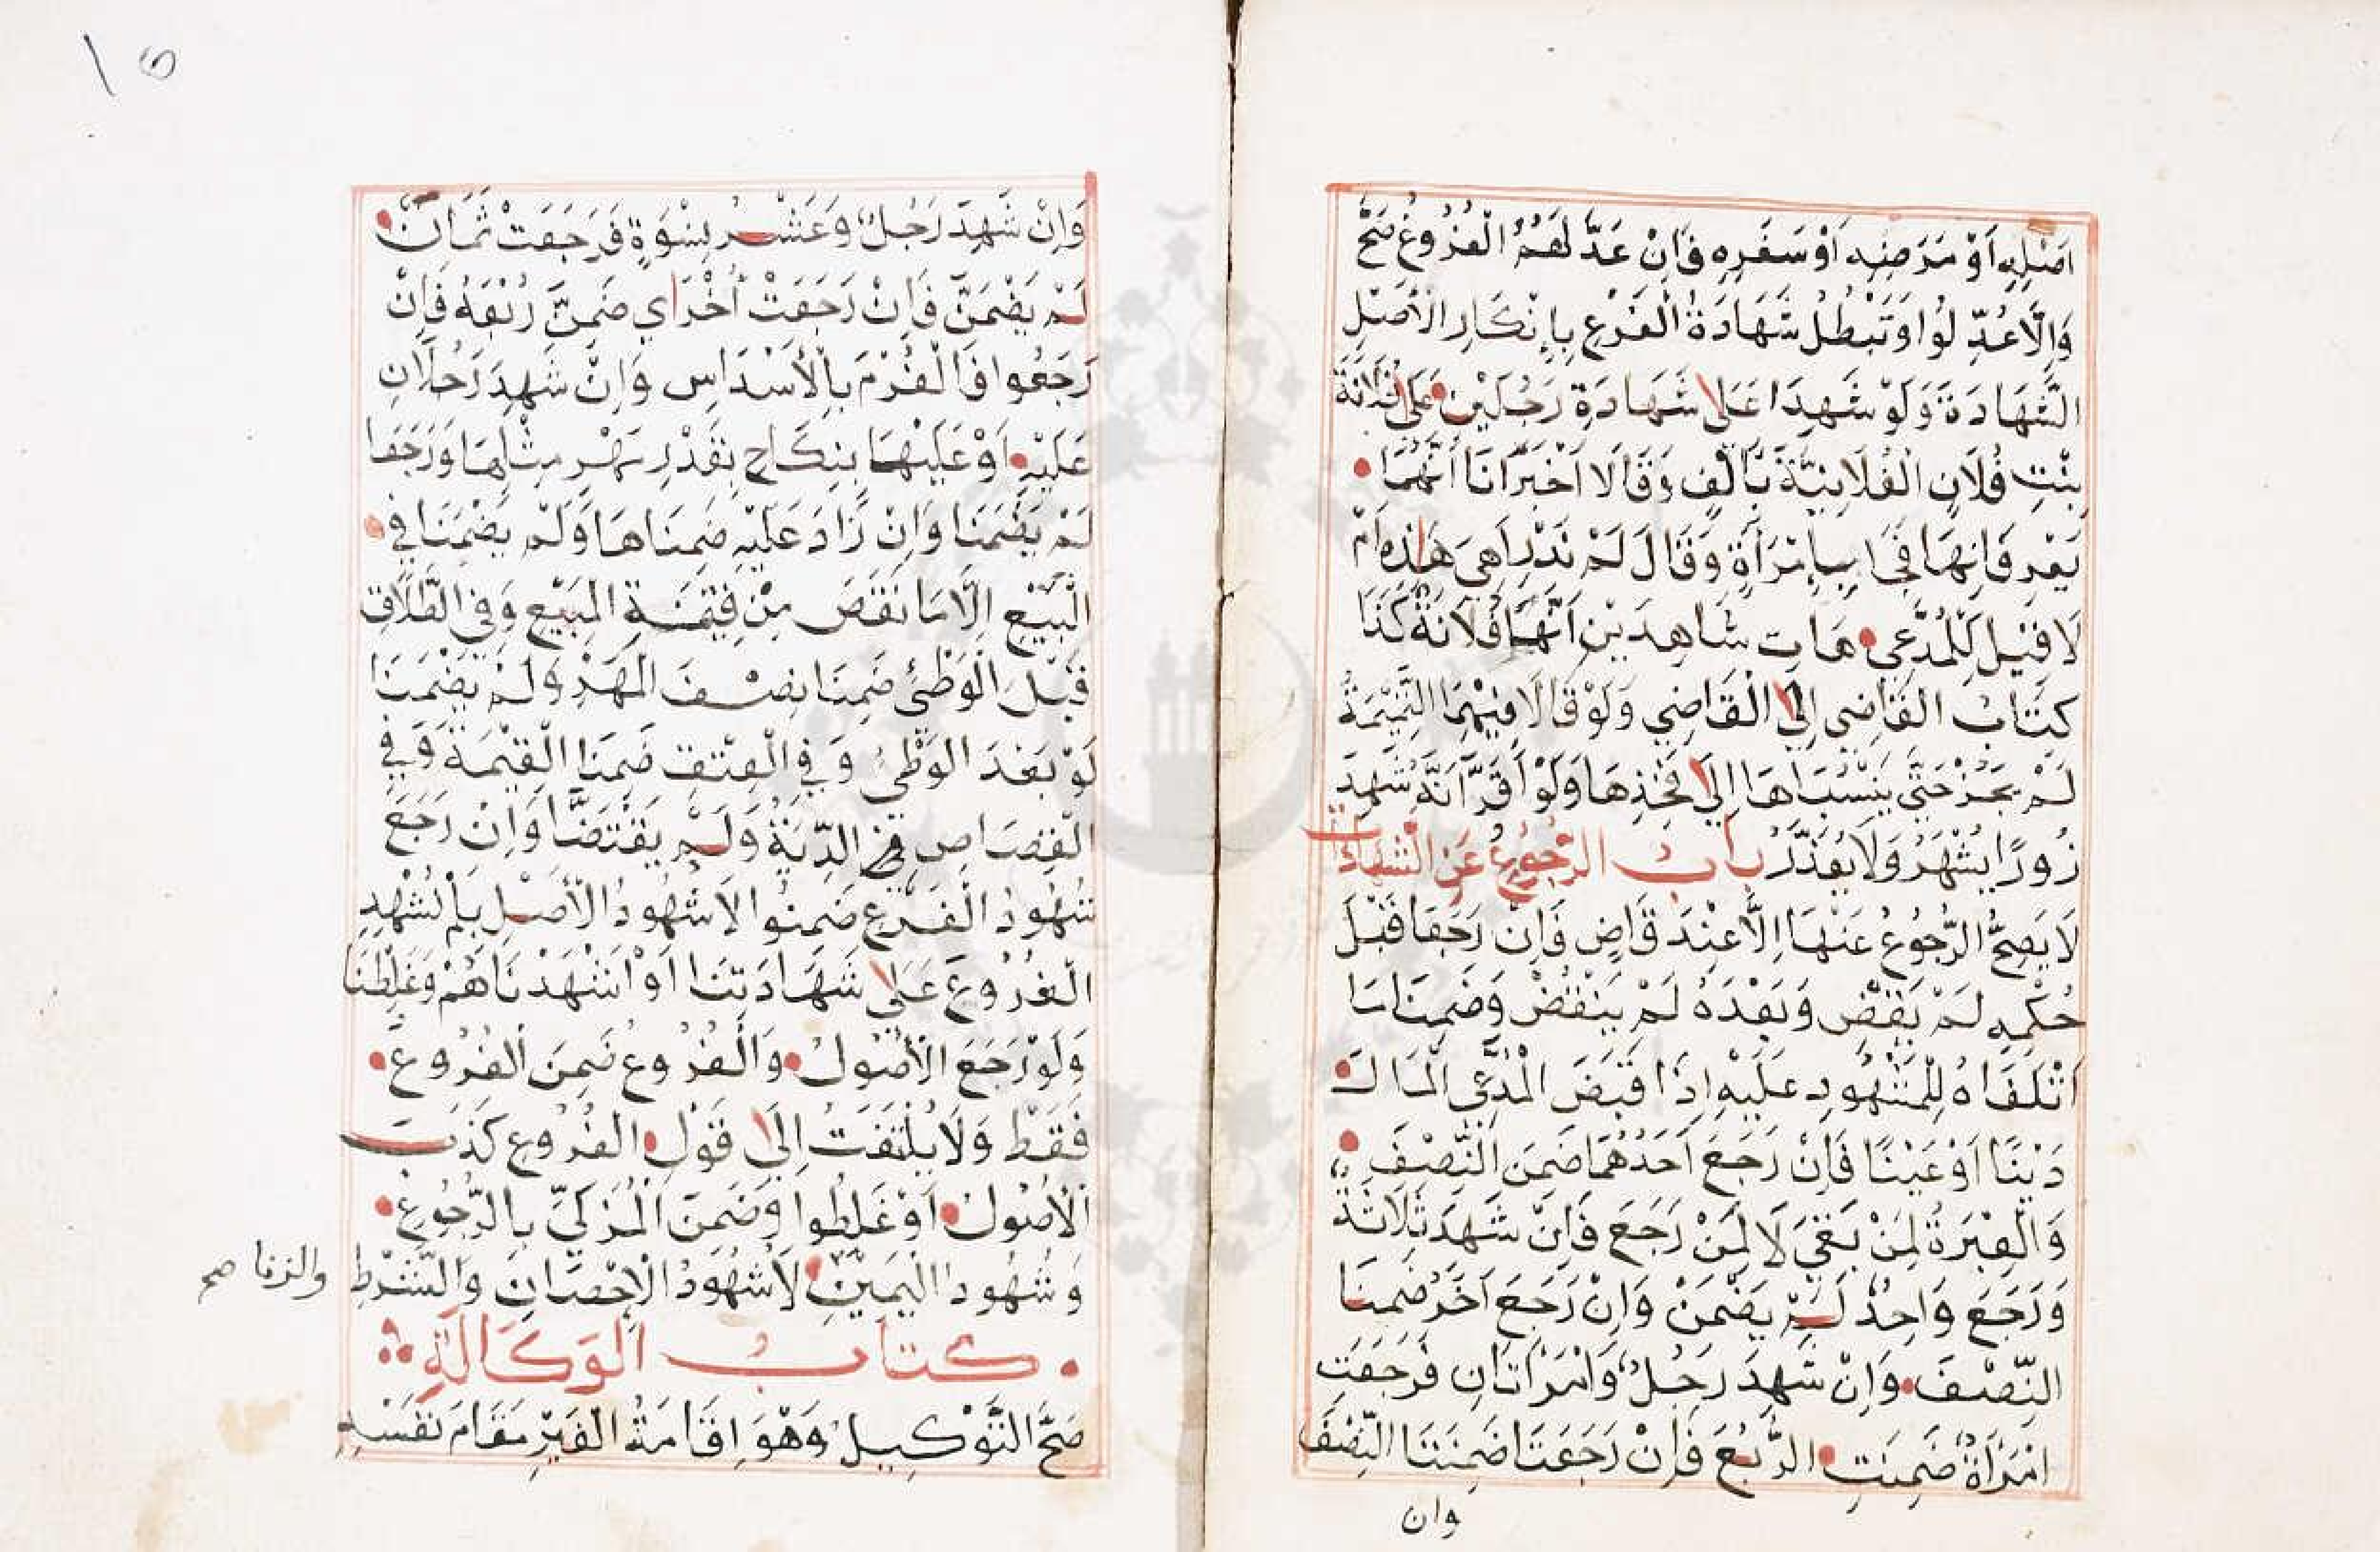 اَصْلِهِ اَوْ مَرَضِهِ اَوْ سَفَرِهِ فَاِنْ عَدَّلَهُمُ الْفُرُوعُ صَحَّ
وَاِلَّا عُدِّلُوا وَتَبْطُلُ شَهَادَةُ الْفَرْعِ بِاِنْكَارِ الْاَصْلِ
الشَّهَادَةَ وَلَوْ شَهِدَا عَلَى شَهَادَةِ رَجُلَيْنِ عَلَى فُلَانَةَ
بِنْتِ فُلَانٍ الْفُلَانِيَّةِ بِاَلْفٍ وَقَالَا اَخْبَرَانَا اَنَّهُمَا
يَعْرِفَانِهَا فَجَا بِاِمْرَأَةٍ وَقَالَ لَمْ نَدْرِ اَهِيَ هَاذِهِ اَمْ
لَا قِيْلَ لِلْمُدَّعِي هَاتِ شَاهِدَيْنِ اَنَّهَا فُلَانَةُ كَذَا
كِتَابُ الْقَاضِي اِلَى الْقَاضِي وَلَوْ قَالَا فِيْهِمَا التَّمِيْمِيَّةُ
لَمْ يَجُزْ حَتَّى يَنْسُبَاهَا اِلَى فَخِذِهَا وَلَوْ اَقَرَّ اَنَّهُ شَهِدَ
زُورًا يُشَهَّرُ وَلَا يُعَذَّرُ بَابُ الرُّجُوعِ عَنِ الشَّهَادَاتِ
لَا يَصِحُّ الرُّجُوعُ عَنْهَا اِلَّا عِنْدَ قَاضٍ فَاِنْ رَجَعَا قَبْلَ
حُكْمِهِ لَمْ يَقْضِ وَبَعْدَهُ لَمْ يَنْقُضْ وَضَمِنَا مَا
اَتْلَفَاهُ لِلْمَشْهُودِ عَلَيْهِ اِذَا قَبَضَ الْمُدَّعِي الْمَالَ
دَيْنًا اَوْ عَيْنًا فَاِنْ رَجَعَ اَحَدُهُمَا ضَمِنَ النِّصْفَ
وَالْعِبْرَةُ لِمَنْ بَقِيَ لَا لِمَنْ رَجَعَ فَاِنْ شَهِدَ ثَلَاثَةٌ
وَرَجَعَ وَاحِدٌ لَمْ يَضْمَنْ وَاِنْ رَجَعَ اَخَرُ ضَمِنَا
النِّصْفَ وَاِنْ شَهِدَ رَجُلٌ وَامْرَاَتَانِ فَرَجَعَتِ
امْرَاَةٌ ضَمِنَتِ الرُّبُعَ فَاِنْ رَجَعَتَا ضَمِنَتَا النِّصْفَ
وان
١٥
وَاِنْ شَهِدَ رَجُلٌ وَعَشْرُ نِسْوَةٍ فَرَجَعَتْ ثَمَانٌ
لَمْ يَضْمَنَّ فَاِنْ رَجَعَتْ اُخْرَاي ضَمِنَّ رُبْعَهُ فَاِنْ
رَجَعُوا فَالْغُرْمُ بِالْاَسْدَاسِ وَاِنْ شَهِدَ رَجُلَانِ
عَلَيْهِ اَوْ عَلَيْهَا بِنِكَاحٍ بِقَدْرِ مَهْرِ مِثْلِهَا وَرَجَعَا
لَمْ يَضْمَنَا وَاِنْ زَادَ عَلَيْهِ ضَمِنَاهَا وَلَمْ يَضْمَنَا فِي
الْبَيْعِ اِلَّا مَا نَقَصَ مِنْ قِيْمَةِ الْمَبِيْعِ وَفِي الطَّلَاقِ
قَبْلَ الْوَطْئِ ضَمِنَا نِصْفَ الْمَهْرِ وَلَمْ يَضْمَنَا
لَوْ بَعْدَ الْوَطْئِ وَفِي الْعِتْقِ ضَمِنَا الْقِيْمَةَ وَفِي
الْقِصَاصِ الدِّيَةَ وَلَمْ يُقْتَصَّا وَاِنْ رَجَعَ
شُهُودُ الْفَرْعِ ضَمِنُوا لَا شُهُودُ الْاَصْلِ بِلَمْ نُشْهِدِ
الْفُرُوعَ عَلَى شَهَادَتِنَا اَوْ اَشْهَدْنَاهُمْ وَغَلِطْنَا
وَلَوْ رَجَعَ الْاُصُولُ وَالْفُرُوعُ ضَمِنَ الْفُرُوعُ
فَقَطْ وَلَا يُلْتَفَتُ اِلَى قَوْلِ الْفُرُوعِ كَذَبَ
الْاُصُولُ اَوْ غَلِطُوا وَضَمِنَ الْمُزَكِّي بِالرُّجُوعِ
وَشُهُودُ الْيَمِيْنِ لَا شُهُودُ الْاِحْصَانِ وَالشَّرْطِ والزنا صح
كِتَابُ الْوَكَالَةِ
صَحَّ التَّوْكِيلُ وَهُوَ اِقَامَةُ الْغَيْرِ مَقَامَ نَفْسِهِ